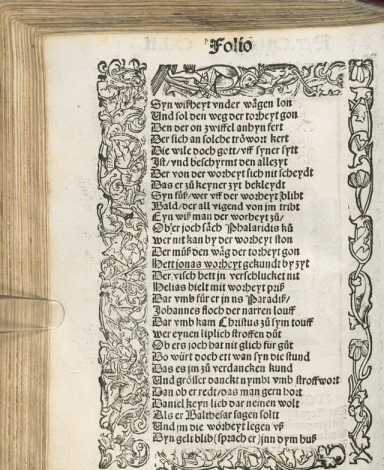 Folio
Syn wißheyt vnder wägen lon
Und sol den weg der torheyt gon
Den der on zwiffel anhyn fert
Der sich an solche tröwort kert
Die wile doch gott/ vff syner sytt
Ist/ vnd beschyrmt den allezyt
Der von der worheyt sich nit scheydt
Das er zů keyner zyt bekleydt
Syn füß/ wer vff der worheyt blibt
Bald/ der all vigend von im tribt
Eyn wiß man der worheyt zů/
Ob er joch säch Phalaridis ků
wer nit kan by der worheyt ston
Der můß den wäg der torheyt gon
Hett jonas worheyt gekundt by zyt
Der visch hett in verschlucket nit
Helias hielt mit worheyt priß
Dar vmb für er in ns Paradiß/
Johannes floch der narren louff
Dar vmb kam Christus zů sym touff
wer eynen liplich stroffen důt
Ob ers joch hat nit glich für gůt
Do würt doch ett wan syn die stund
Das es im zů verdancken kund
Und grösser danck nymbt vmb stroffwort
Dan ob er redt/ das man gern hort
Daniel keyn lieb dar neinen wolt
Als er Balthesar sagen solt
Und im die worheyt legen vß
Dyn gelt blib (sprach er) inn dym huß